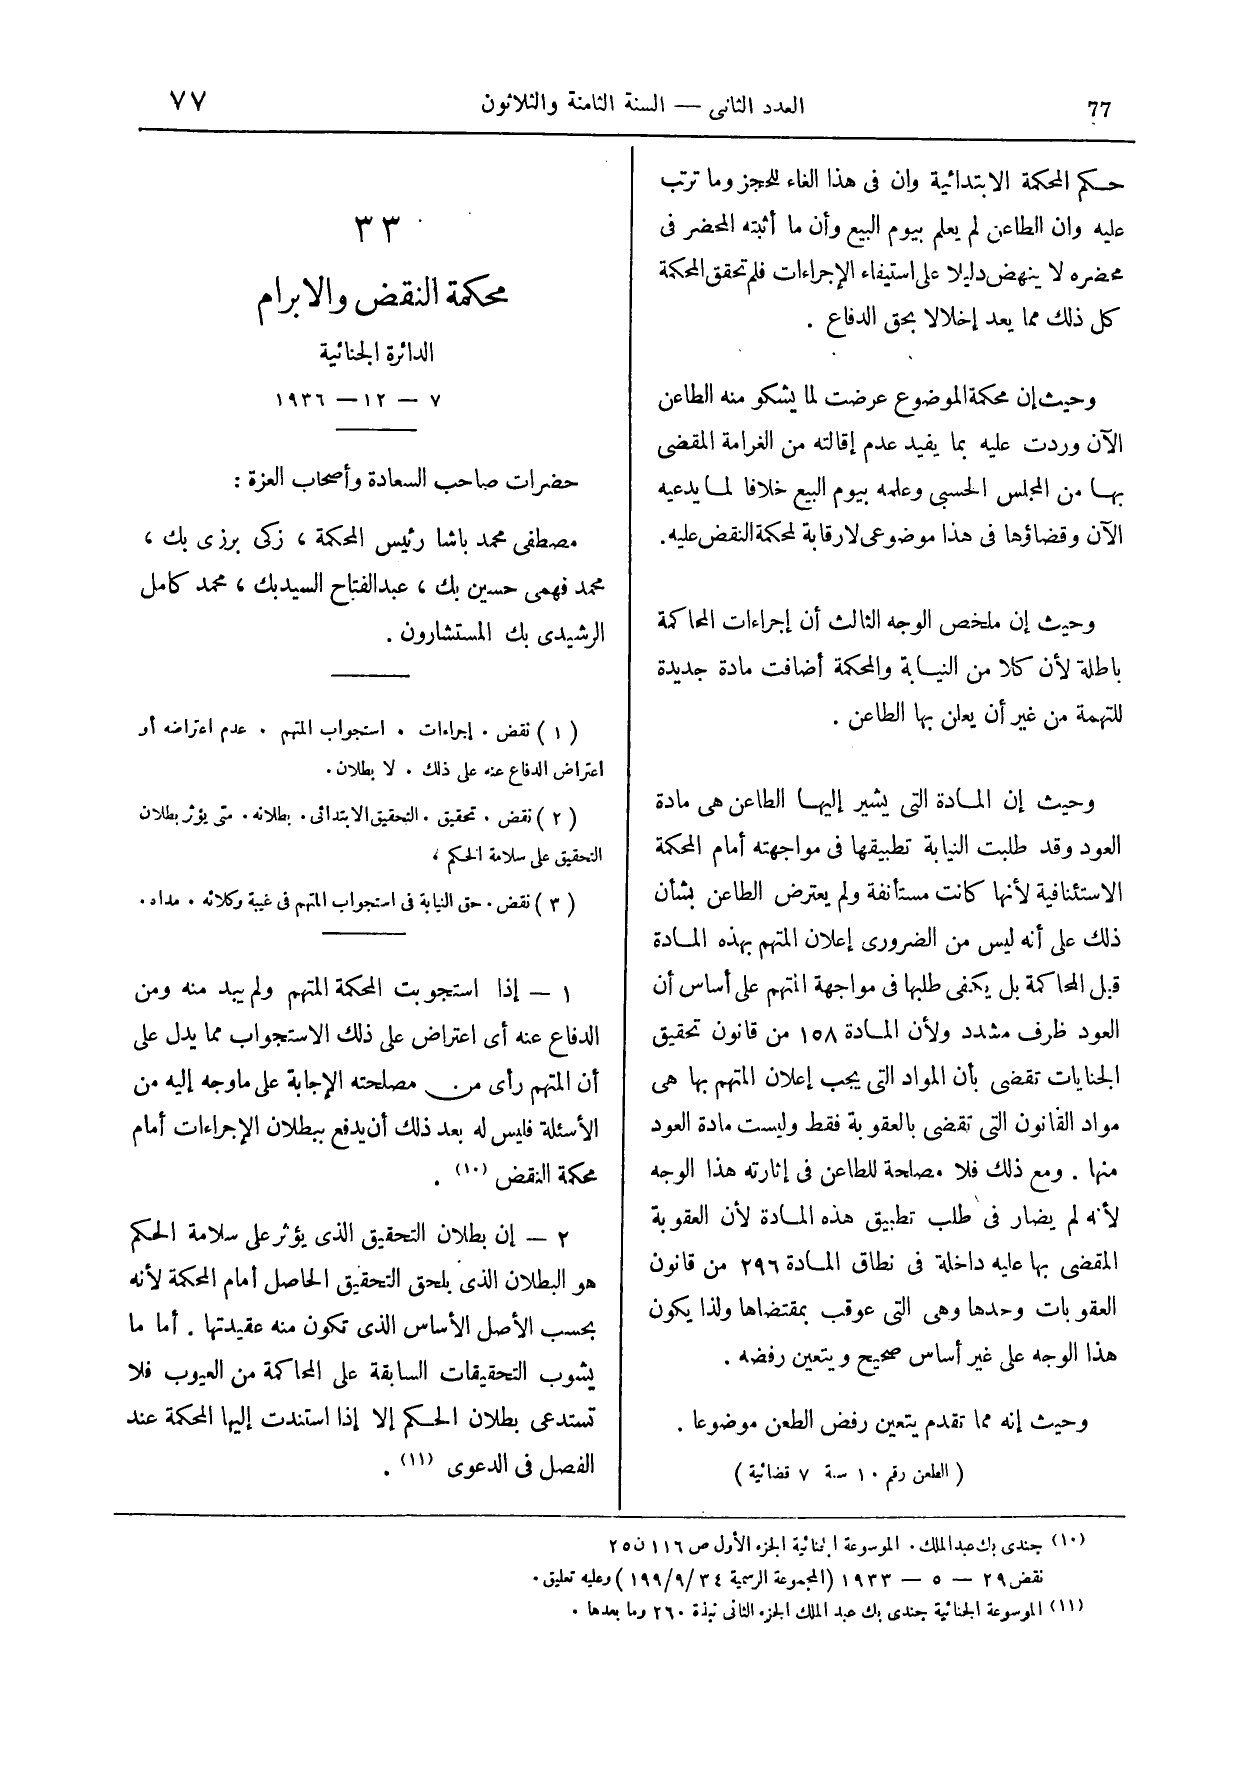 77
العدد الثانى — السنة الثامنة والثلاثون
٧٧
حكم المحكمة الابتدائية وان فى هذا الغاء للحجز وما ترتب
عليه وان الطاعن لم يعلم بيوم البيع وأن ما أثبته المحضر فى
محضره لا ينهض دليلا على استيفاء الإجراءات فلم تحقق المحكمة
كل ذلك مما يعد إخلالا بحق الدفاع .
وحيث إن محكمة الموضوع عرضت لما يشكو منه الطاعن
الآن وردت عليه بما يفيد عدم إقالته من الغرامة المقضى
بها من المجلس الحسبى وعلمه بيوم البيع خلافا لما يدعيه
الآن وقضاؤها فى هذا موضوعى لا رقابة لمحكمة النقض عليه.
وحيث إن ملخص الوجه الثالث أن إجراءات المحاكمة
باطلة لأن كلا من النيابة والمحكمة أضافت مادة جديدة
للتهمة من غير أن يعلن بها الطاعن .
وحيث إن المادة التى يشير إليها الطاعن هى مادة
العود وقد طلبت النيابة تطبيقها فى مواجهته أمام المحكمة
الاستئنافية لأنها كانت مستأنفة ولم يعترض الطاعن بشأن
ذلك على أنه ليس من الضرورى إعلان المتهم بهذه المادة
قبل المحاكمة بل يكفى طلبها فى مواجهة المتهم على أساس أن
العود ظرف مشدد ولأن المادة ١٥٨ من قانون تحقيق
الجنايات تقضى بأن المواد التى يجب إعلان المتهم بها هى
مواد القانون التى تقضى بالعقوبة فقط وليست مادة العود
منها . ومع ذلك فلا مصلحة للطاعن فى إثارته هذا الوجه
لأنه لم يضار فى طلب تطبيق هذه المادة لأن العقوبة
المقضى بها عليه داخلة فى نطاق المادة ٢٩٦ من قانون
العقوبات وحدها وهى التى عوقب بمقتضاها ولذا يكون
هذا الوجه على غير أساس صحيح ويتعين رفضه .
وحيث إنه مما تقدم يتعين رفض الطعن موضوعا .
( الطعن رقم ١٠ سنة ٧ قضائية )
٣٣
محكمة النقض والابرام
الدائرة الجنائية
٧ — ١٢ — ١٩٣٦
حضرات صاحب السعادة وأصحاب العزة :
مصطفى محمد باشا رئيس المحكمة ، زكى برزى بك ،
محمد فهمى حسين بك ، عبد الفتاح السيد بك ، محمد كامل
الرشيدى بك المستشارون .
( ١ ) نقض . إجراءات . استجواب المتهم . عدم اعتراضه أو
اعتراض الدفاع عنه على ذلك . لا بطلان.
( ٢ ) نقض . تحقيق . التحقيق الابتدائى . بطلانه . متى يؤثر بطلان
التحقيق على سلامة الحكم ،
( ٣ ) نقض . حق النيابة فى استجواب المتهم فى غيبة وكلائه . مداه .
١ — إذا استجوبت المحكمة المتهم ولم يبد منه ومن
الدفاع عنه أى اعتراض على ذلك الاستجواب مما يدل على
أن المتهم رأى من مصلحته الإجابة على ما وجه إليه من
الأسئلة فليس له بعد ذلك أن يدفع ببطلان الإجراءات أمام
محكمة النقض (١٠) .
٢ — إن بطلان التحقيق الذى يؤثر على سلامة الحكم
هو البطلان الذى يلحق التحقيق الحاصل أمام المحكمة لأنه
بحسب الأصل الأساس الذى تكون منه عقيدتها . أما ما
يشوب التحقيقات السابقة على المحاكمة من العيوب فلا
تستدعى بطلان الحكم إلا إذا استندت إليها المحكمة عند
الفصل فى الدعوى (١١) .
(١٠) جندى بك عبد الملك . الموسوعة الجنائية الجزء الأول ص ١١٦ ن ٢٥
نقض ٢٩ — ٥ — ١٩٣٣ (المجموعة الرسمية ٣٤/٩/١٩٩) وعليه تعليق .
(١١) الموسوعة الجنائية جندى بك عبد الملك الجزء الثانى نبذة ٢٦٠ وما بعدها .